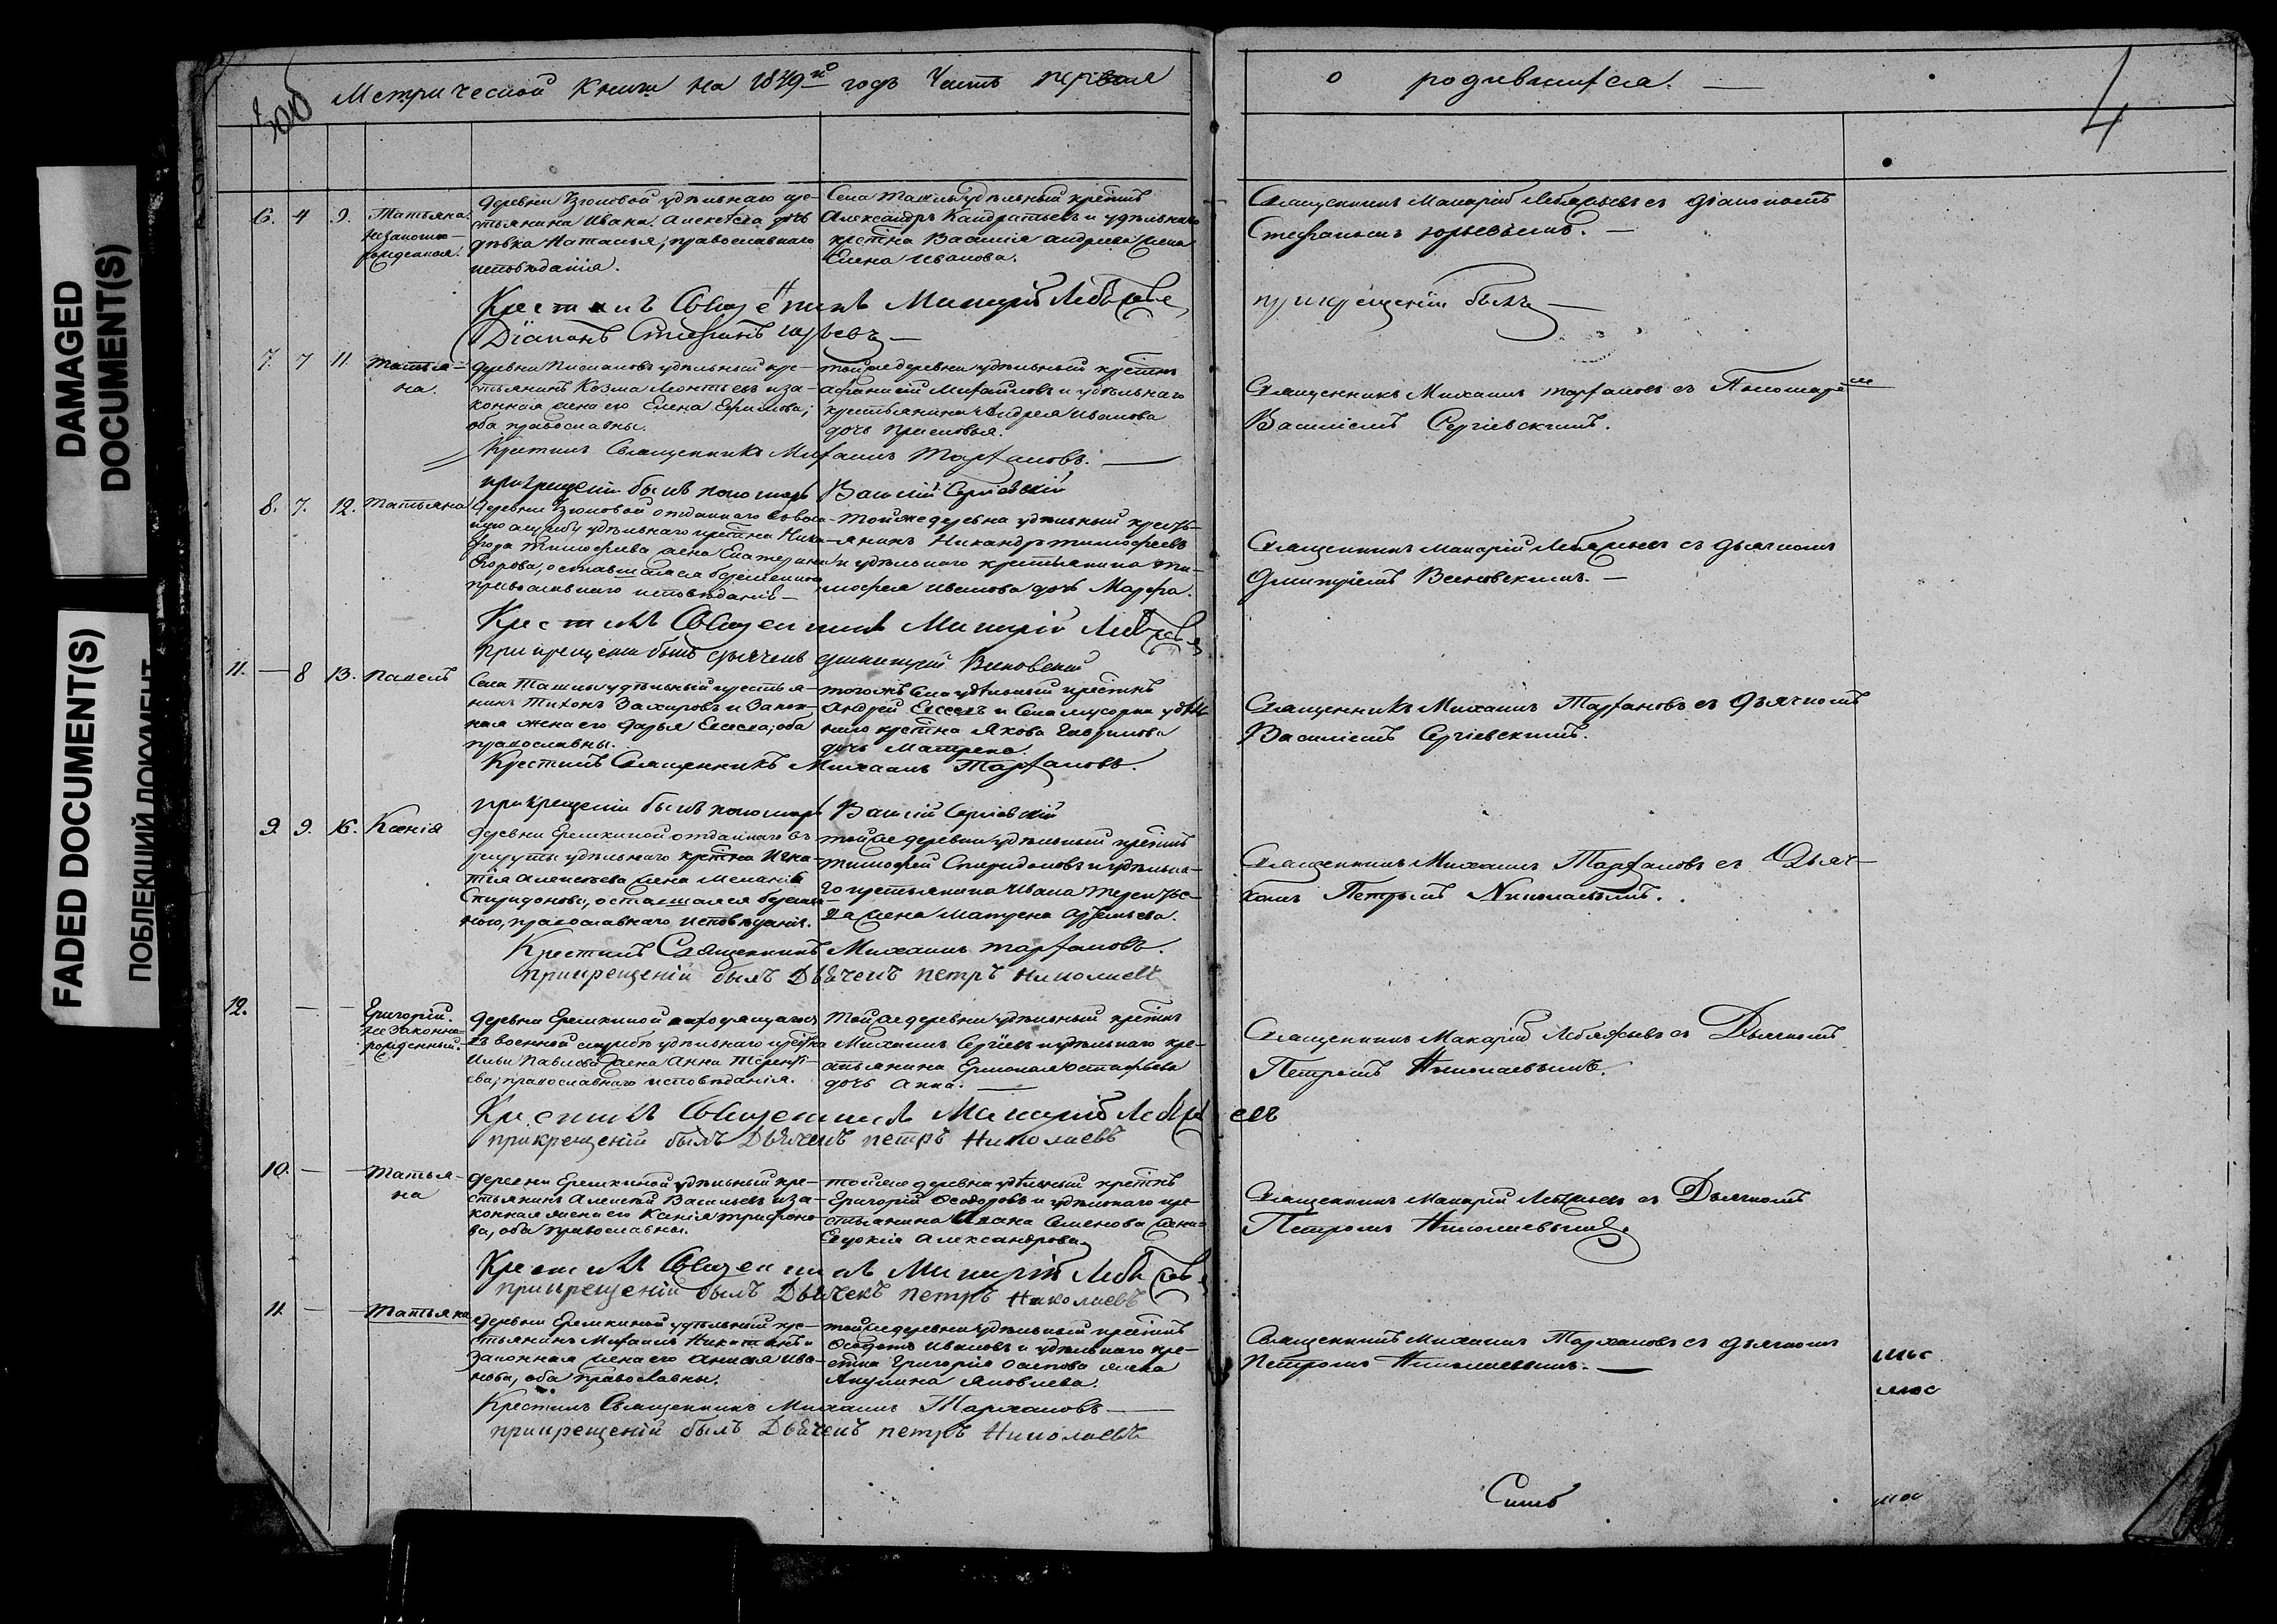 DAMAGED
DOCUMENT(S)
FADED DOCUMENT(S)
ПОБЛЕКШИЙ ДОКУМЕНТ
Метрической книги на 1849й годъ Часть первая
о родившихся.
4
6. 4 9. Татьяна незаконно-рожденная.
деревни Узюковой удѣльнаго кре-
стьянина Ивана Алексѣева дочь
дѣвка Наталья, православнаго
исповѣданія.
Села Ташлы удѣльный крестнъ
Александръ Кандратьевъ и удѣльнаго
крестна Василія Андреева жена
Елена Иванова.
Священникъ Макарій Лебяжьевъ съ діакономъ
Стефаномъ Юрьевымъ.
Крестилъ Священникъ Макарій Лебяжьевъ
Діаконъ Стефанъ Юрьевъ
при крещеніи былъ
7. 7 11 Татья-
на.
деревни Писмановъ удѣльный кре-
стьянинъ Козма Леонтьевъ и за-
конная жена его Елена Ефимова;
оба православны.
той же деревни удѣльный крестнъ
Афанасій Михайловъ и удѣльнаго
крестьянина Андрея Иванова
дочь Прасковья.
Священникъ Михаилъ Тарханов съ Пономаремъ
Василіемъ Сергіевскимъ.
Крестилъ Священникъ Михаилъ Тархановъ.
при крещеніи былъ пономарь Василій Сергіевскій
8. 7. 12. Татьяна
деревни Узюковой отданнаго въ воен-
ную службу удѣльнаго крестна Ники-
фора Тимофеева жена Екатерина
Егорова, оставшаяся беременною
православнаго исповѣданія
той же деревни удѣльный кресть-
янинъ Никандръ Тимофеевъ
и удѣльнаго крестьянина Ти-
мофея Иванова дочь Марфа.
Священникъ Макарій Лебяжьевъ съ дьячкомъ
Дмитріемъ
Крестилъ Священникъ Макарій Лебяжьевъ
При крещеніи былъ дьячекъ Димитрій
11. — 8 13. Павелъ
Села Ташлы удѣльный крестья-
нинъ Тихонъ Захаровъ и Закон-
ная жена его Дарья Елисеева; оба
православны.
того жъ Села удѣльный крестнъ
Андрей и Села Мусорки удѣль-
наго крестна Якова Гаврилова
дочь Матрена
Священникъ Михаилъ Тархановъ съ Дьячкомъ
Василіемъ Сергіевскимъ.
Крестилъ Священникъ Михаилъ Тархановъ.
при крещеніи былъ пономарь Василій Сергіевскій
9. 9. 16. Ксенія
деревни Еремкиной отданнаго въ
рекруты удѣльнаго крестна Игна-
тія Алексѣева жена Меланія
Спиридонова, оставшаяся беремен-
ною, православнаго исповѣданія.
той же деревни удѣльный крестнъ
Тимофей Спиридоновъ и удѣльна-
го крестьянина Ивана Теренть-
ева жена Матрена Артемьева.
Священникъ Михаилъ Тархановъ съ Дьяч-
комъ Петромъ Николаевымъ.
Крестилъ Священникъ Михаилъ Тархановъ.
при крещеніи былъ Дьячекъ петръ Николаевъ
12. — — Григорій.
незаконно-
рожденный.
деревни Еремкиной находящагося
въ военной службѣ удѣльнаго крестна
Ильи Павлова жена Анна Теренть-
ева; православнаго исповѣданія.
Той же деревни удѣльный крестнъ
Михаилъ Сергѣевъ и удѣльнаго кре-
стьянина Ермолая Остафьева
дочь Анна.
Священникъ Макарій Лебяжьевъ съ Дьячкомъ
Петромъ Николаевымъ.
Крестилъ Священникъ Макарій Лебяжьевъ
при крещеній былъ Дьячекъ петръ Николаевъ
10. — — Татья-
на
деревни Еремкиной удѣльный кре-
стьянинъ Алексѣй Васильевъ и за-
конная жена его Ксенія Трифоно-
ва, оба православны.
той же деревни удѣльный крестнъ
Григорій Феодоровъ и удѣльнаго кре-
стьянина Ивана Семенова жена
Евдокія Александрова
Священникъ Макарій Лебяжьевъ съ Дьячкомъ
Петромъ Николаевымъ.
Крестилъ Священникъ Макарій Лебяжьевъ
при крещеній былъ Дьячекъ петръ Николаевъ
11 — — Татьяна
деревни Еремкиной удѣльный кре-
стьянинъ Михаилъ Никитинъ и
законная жена его Анисья Ива-
нова, оба православны.
той же деревни удѣльный крестнъ
Федотъ Ивановъ и удѣльнаго кре-
стна Григорія Осипова жена
Акулина Яковлева.
Священникъ Михаилъ Тархановъ съ дьячкомъ
Петромъ Николаевымъ.
Крестилъ Священникъ Михаилъ Тархановъ
при крещеній былъ Дьячекъ петръ Николаевъ